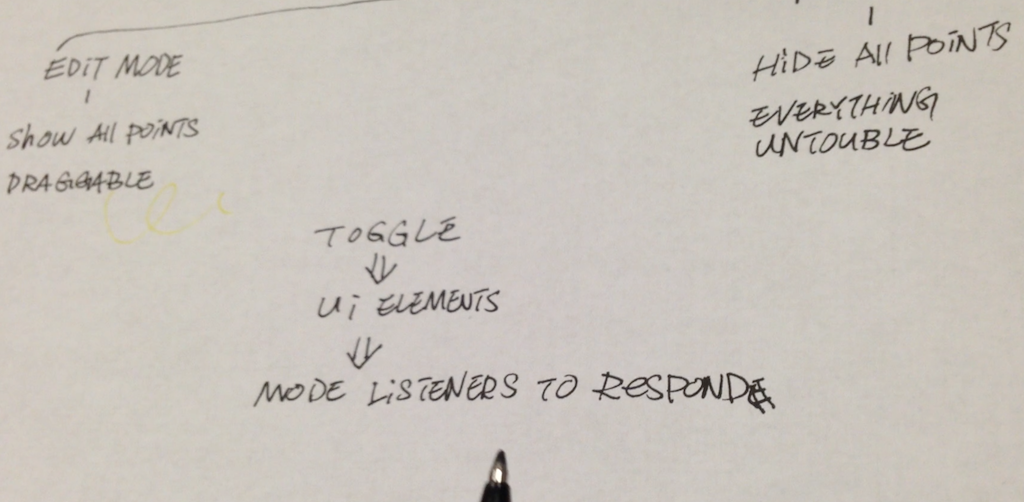 EDIT MODE
SHOW All POINTS
DRAGGABLE
HIDE All POINTS
EVERYTHING
UNTOUBLE
TOGGLE
Ui ELEMENTS
MODE LISTENERS TO RESPOND